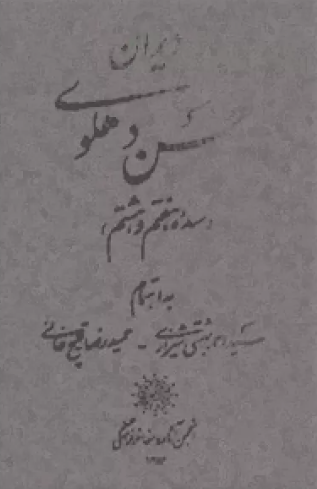 دیوان
حسن دهلوی
(سده هفتم و هشتم)
به اهتمام
سید احمد بهشتی شیرازی - حمیدرضا قلیچ خانی
انجمن آثار و مفاخر فرهنگی